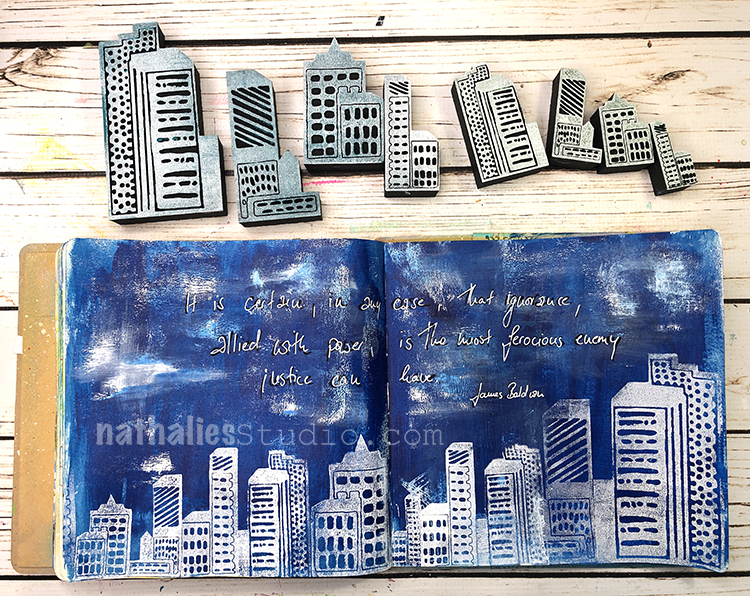 It is certain, in any case, that ignorance,
allied with power, is the most ferocious enemy
justice can have.
James Baldwin
nathaliesStudio.com